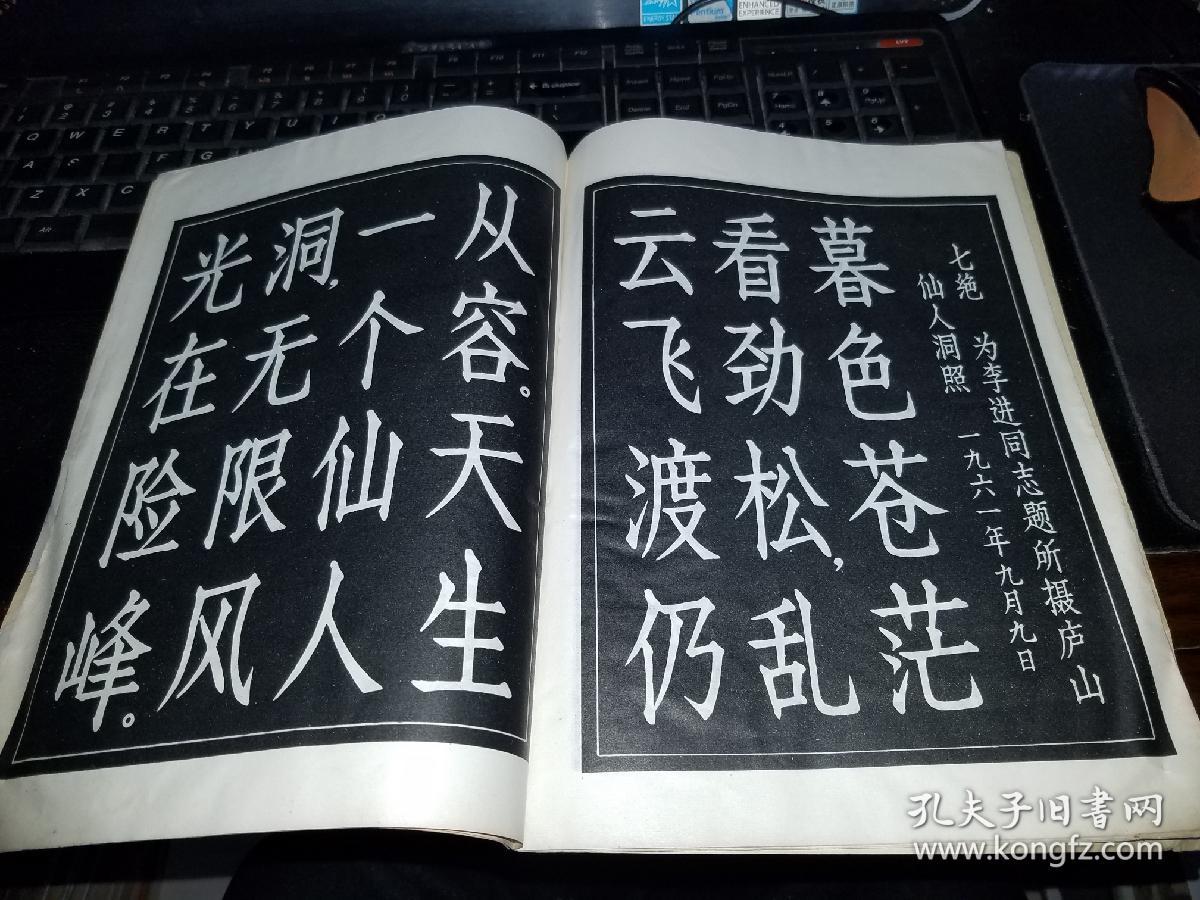 七绝 为李进同志题所摄庐山
仙人洞照 一九六一年九月九日
暮色苍茫
看劲松，乱
云飞渡仍
从容。天生
一个仙人
洞，无限风
光在险峰。
孔夫子旧书网
www.kongfz.com